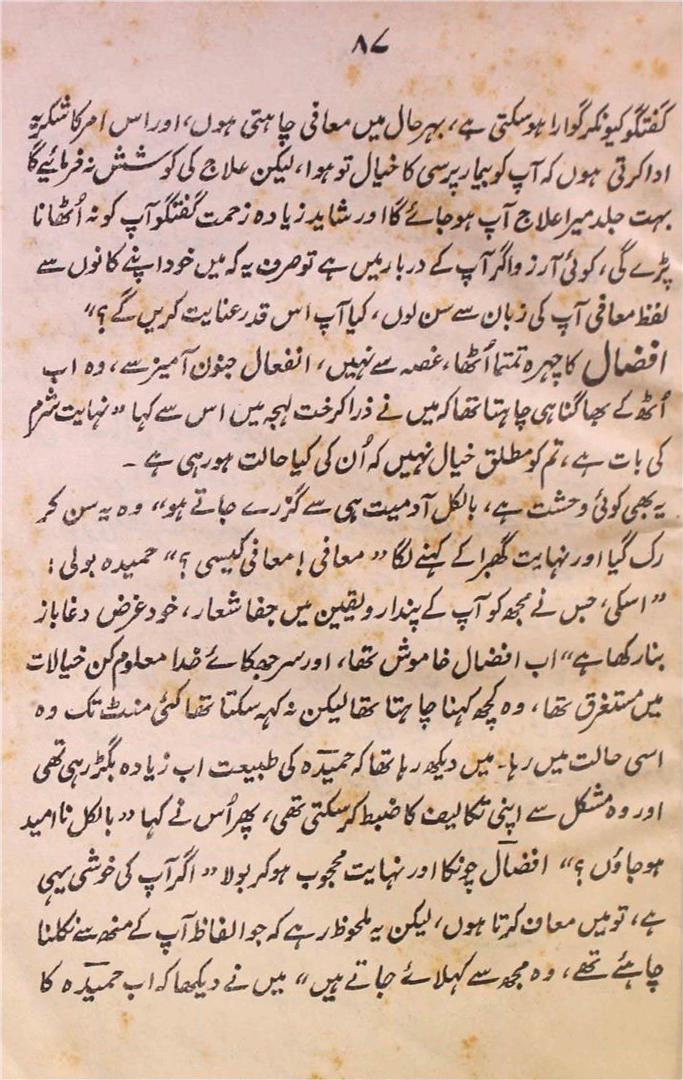 ۸۷
گفتگو کیونکر گوارا ہوسکتی ہے، بہرحال میں معافی چاہتی ہوں، اور اس امر کا شکریہ
ادا کرتی ہوں کہ آپ کو بیمار پرسی کا خیال تو ہوا، لیکن علاج کی کوشش نہ فرمائیے گا
بہت جلد میرا علاج آپ ہوجائے گا اور شاید زیادہ زحمت گفتگو آپ کو نہ اُٹھانا
پڑے گی، کوئی آرزو اگر آپ کے دربار میں ہے تو صرف یہ کہ میں خود اپنے کانوں سے
لفظ معافی آپ کی زبان سے سن لوں، کیا آپ اس قدر عنایت کریں گے؟"
افضال کا چہرہ تمتما اُٹھا، غصہ سے نہیں، انفعال جنون آمیز سے، وہ اب
اُٹھ کے بھاگنا ہی چاہتا تھا کہ میں نے ذرا کرخت لہجہ میں اس سے کہا "نہایت شرم
کی بات ہے، تم کو مطلق خیال نہیں کہ اُن کی کیا حالت ہورہی ہے ۔
یہ بھی کوئی وحشت ہے، بالکل آدمیت ہی سے گزرے جاتے ہو" وہ یہ سن کر
رک گیا اور نہایت گھبرا کے کہنے لگا "معافی! معافی کیسی؟" حمیدہ بولی:
"اسکی، جس نے مجھ کو آپ کے پندار ویقین میں جفا شعار، خود غرض دغاباز
بنا رکھا ہے" اب افضال خاموش تھا، اور سر جھکائے خدا معلوم کن خیالات
میں مستغرق تھا، وہ کچھ کہنا چاہتا تھا لیکن نہ کہہ سکتا تھا کئی منٹ تک وہ
اسی حالت میں رہا۔ میں دیکھ رہا تھا کہ حمیدہ کی طبیعت اب زیادہ بگڑ رہی تھی
اور وہ مشکل سے اپنی تکالیف کا ضبط کرسکتی تھی، پھر اُس نے کہا "بالکل نا امید
ہوجاؤں؟" افضال چونکا اور نہایت محجوب ہوکر بولا "اگر آپ کی خوشی یہی
ہے، تو میں معاف کرتا ہوں، لیکن یہ ملحوظ رہے کہ جو الفاظ آپ کے منھ سے نکلنا
چاہئے تھے، وہ مجھ سے کہلائے جاتے ہیں" میں نے دیکھا کہ اب حمیدہ کا